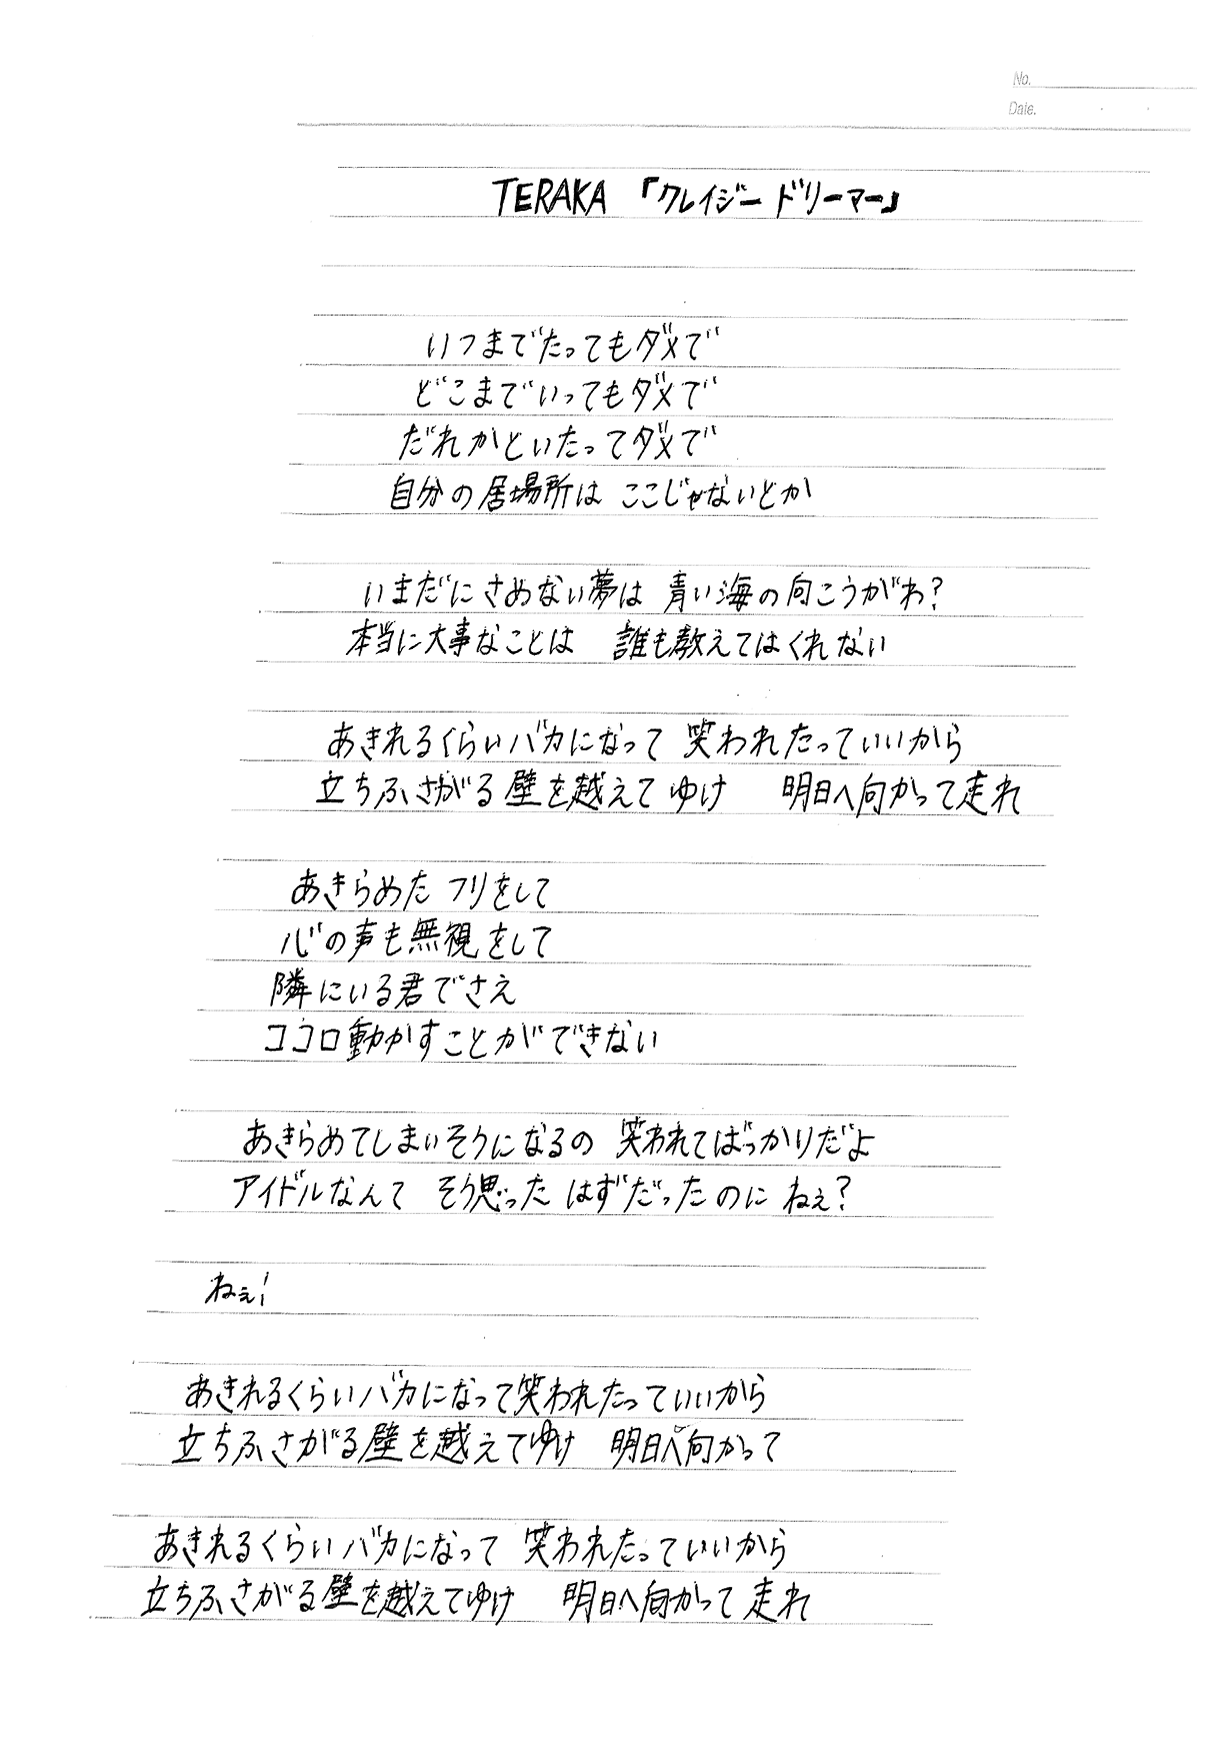 No.
Date.
TERAKA 「クレイジー ドリーマー」
いつまでたってもダメで
どこまでいってもダメで
だれかといたってダメで
自分の居場所は ここじゃないとか
いまだにさめない夢は 青い海の向こうがわ?
本当に大事なことは 誰も教えてはくれない
あきれるくらいバカになって 笑われたっていいから
立ちふさがる壁を越えてゆけ 明日へ向かって走れ
あきらめた フリをして
心の声も無視をして
隣にいる君でさえ
ココロ動かすことができない
あきらめてしまいそうになるの 笑われてばっかりだよ
アイドルなんて そう思った はずだったのに ねぇ?
ねぇ!
あきれるくらいバカになって笑われたっていいから
立ちふさがる壁を越えてゆけ 明日へ向かって
あきれるくらいバカになって 笑われたっていいから
立ちふさがる壁を越えてゆけ 明日へ向かって 走れ